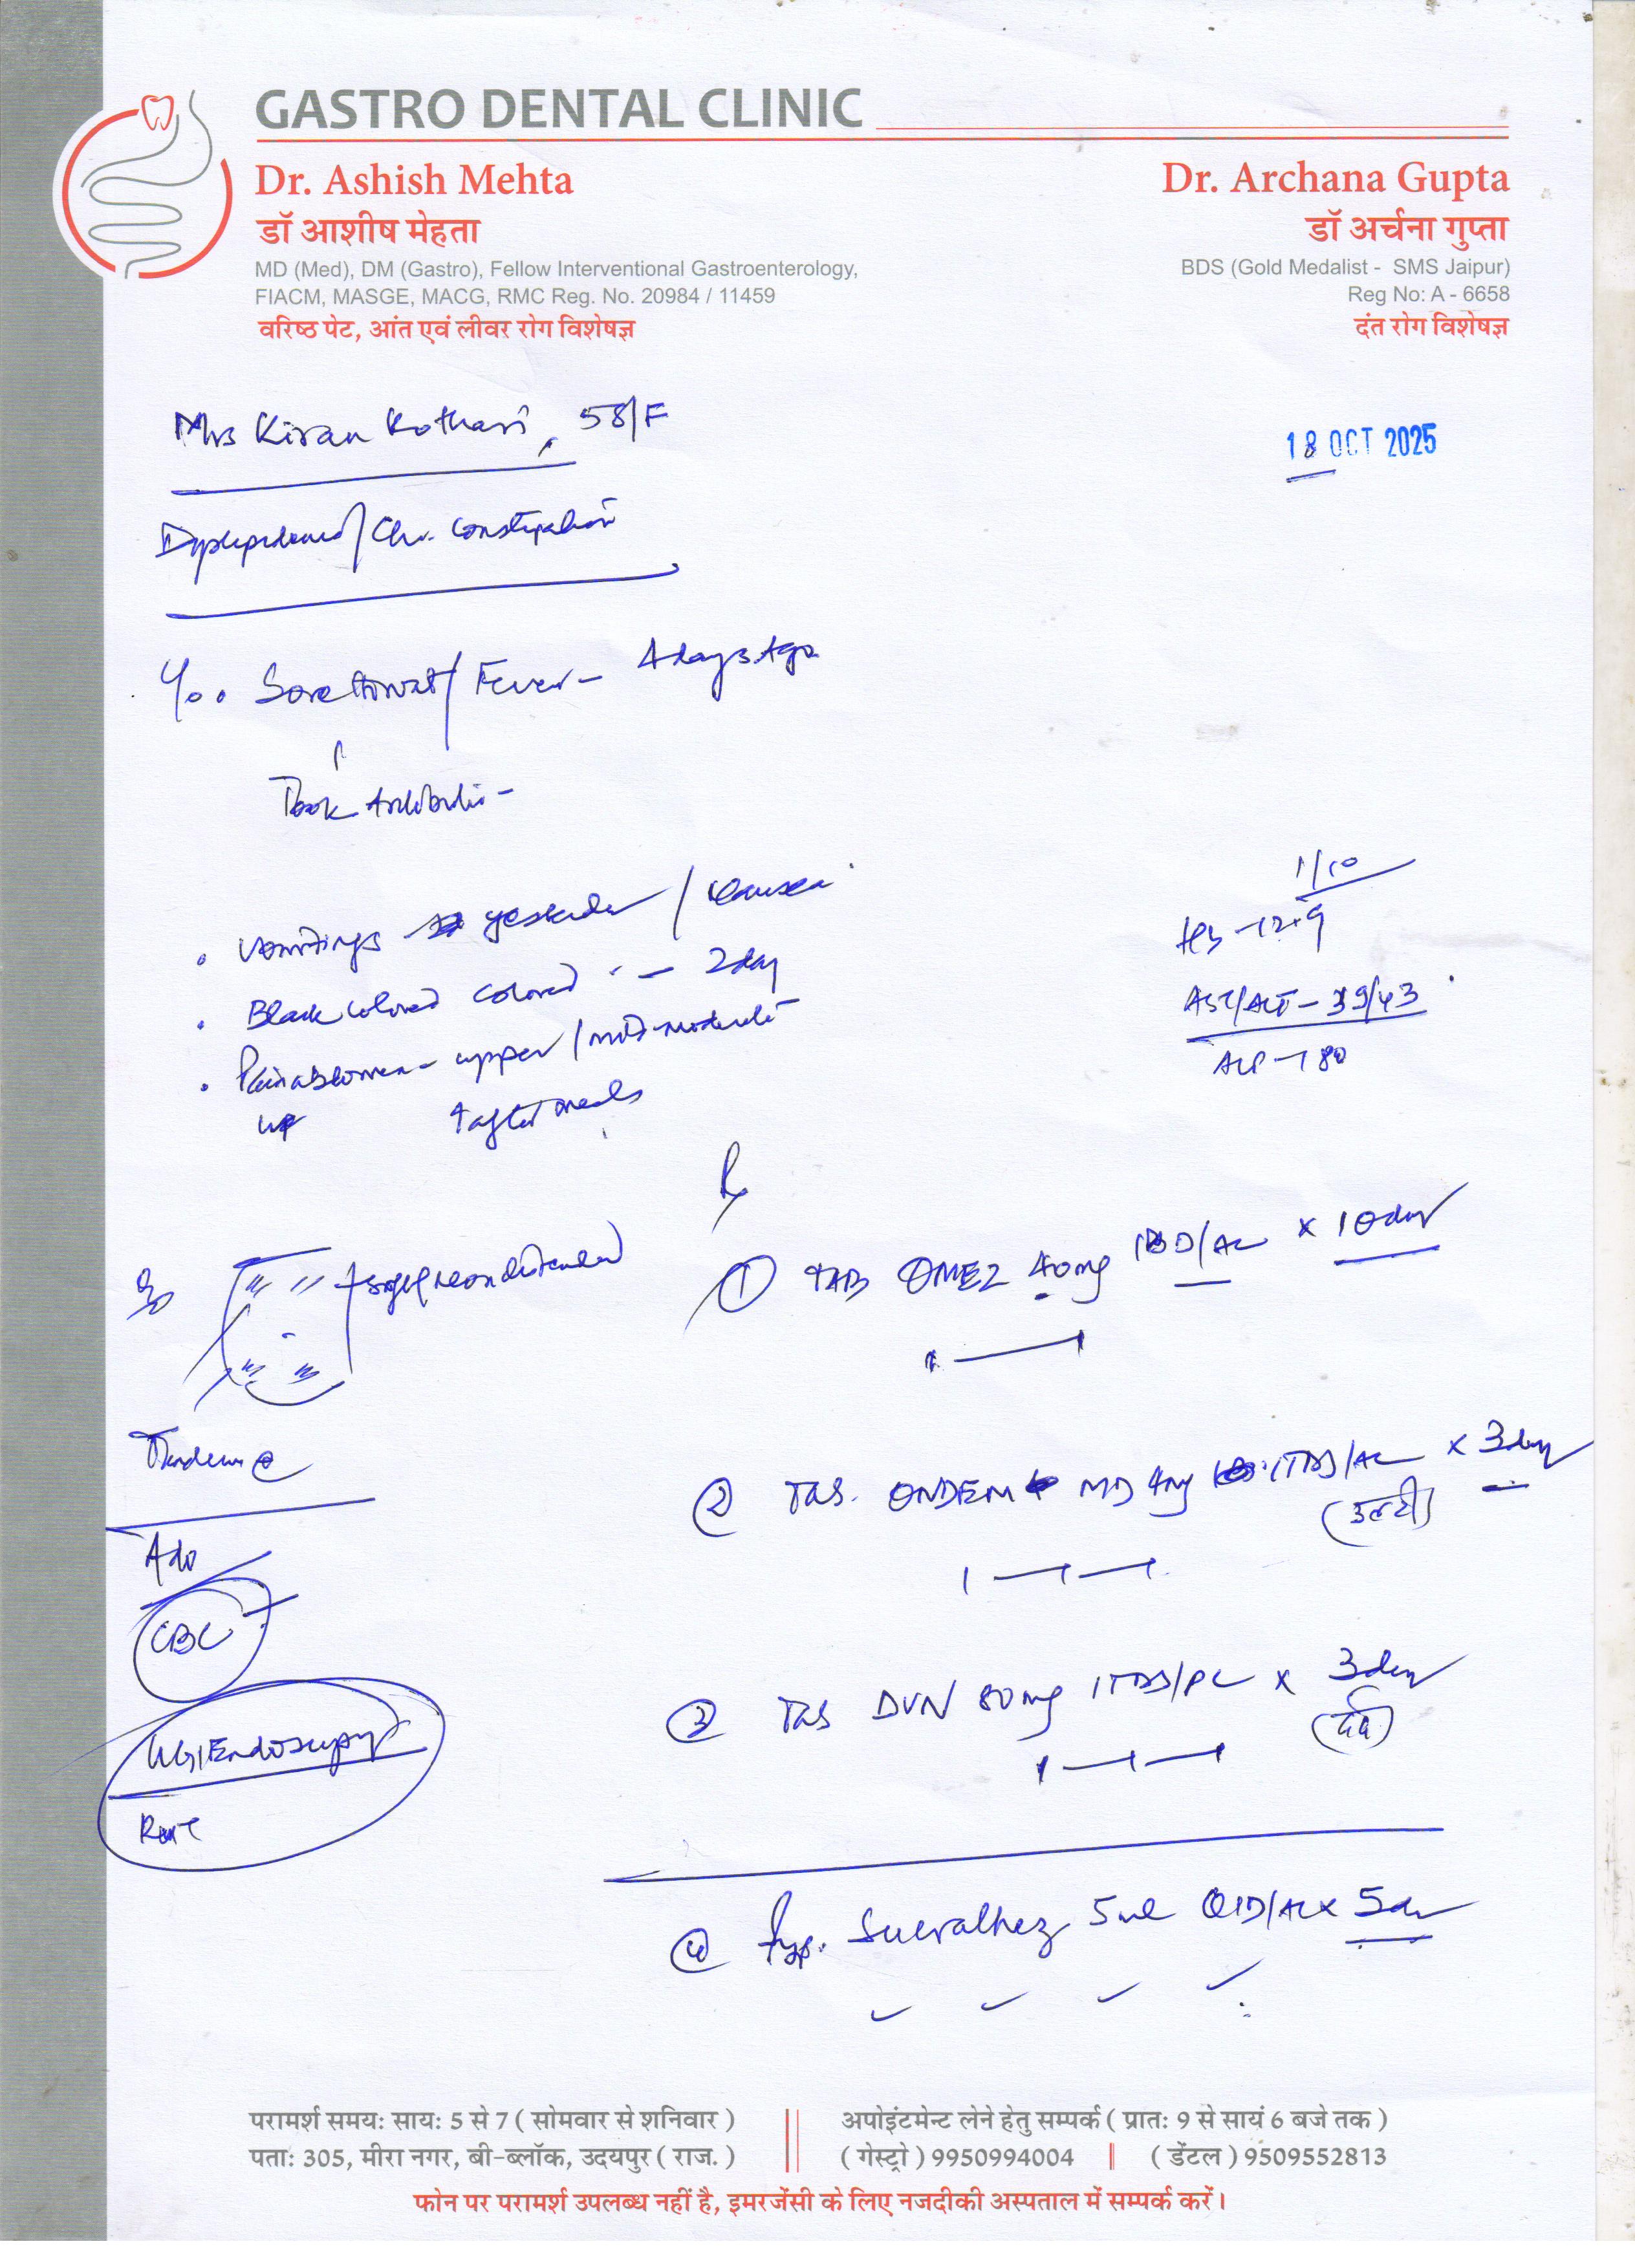 GASTRO DENTAL CLINIC
Dr. Ashish Mehta
डॉ आशीष मेहता
MD (Med), DM (Gastro), Fellow Interventional Gastroenterology,
FIACM, MASGE, MACG, RMC Reg. No. 20984 / 11459
वरिष्ठ पेट, आंत एवं लीवर रोग विशेषज्ञ
Dr. Archana Gupta
डॉ अर्चना गुप्ता
BDS (Gold Medalist - SMS Jaipur)
Reg No: A - 6658
दंत रोग विशेषज्ञ
Mrs Kiran Kothari, 58/F
18 OCT 2025
/ Chr. Constipation
Sore throat / Fever - 4 days Ago
Took
. Vomitings yesterday / Nausea
. Black colored colored - 2 day
. Pain abdomen - upper / mild-moderate
after meals
1/10
Hb - 12.9
AST/ALT - 39/43
ALP - 180
Rx
① TAB OMEZ 40mg 1BD/AC x 10 day
② Tab. ONDEM MD 4mg 1TDS/AC x 3 day
(उल्टी)
③ Tab DVN 80mg 1TDS/PC x 3 day
(दर्द)
④ Syp. 5ml QID/AC x 5 day
Adv
CBC
UGI Endoscopy
परामर्श समयः सायः 5 से 7 ( सोमवार से शनिवार )
पताः 305, मीरा नगर, बी-ब्लॉक, उदयपुर ( राज. )
अपोइंटमेन्ट लेने हेतु सम्पर्क ( प्रातः 9 से सायं 6 बजे तक )
( गेस्ट्रो ) 9950994004 | ( डेंटल ) 9509552813
फोन पर परामर्श उपलब्ध नहीं है, इमरजेंसी के लिए नजदीकी अस्पताल में सम्पर्क करें।